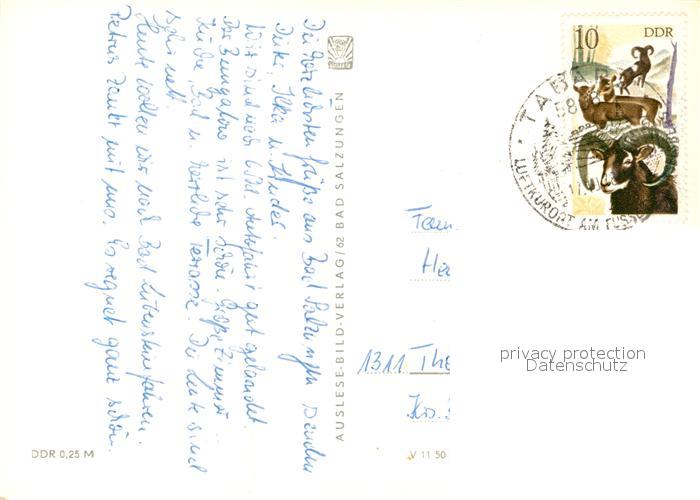 Die herzlichsten Grüße aus Bad Salzungen senden
Dirk, Ilka u. Andes.
Wir sind nach 6 Std. Autofahrt gut gelandet.
Der Bungalow ist sehr schön. Große Zimmer
Küche, Bad u. herrliche Terrasse. Die Leute sind
sehr nett.
Heute wollen wir nach Bad Liebenstein fahren.
Petrus zankt mit uns. Es regnet ganz schön.
AUSLESE-BILD-VERLAG/62 BAD SALZUNGEN
DDR 0,25 M
V 11 50
10 DDR
TABA
LUFTKURORT AM FUSS
Fam.
He
1311 The
Krs.
privacy protection
Datenschutz